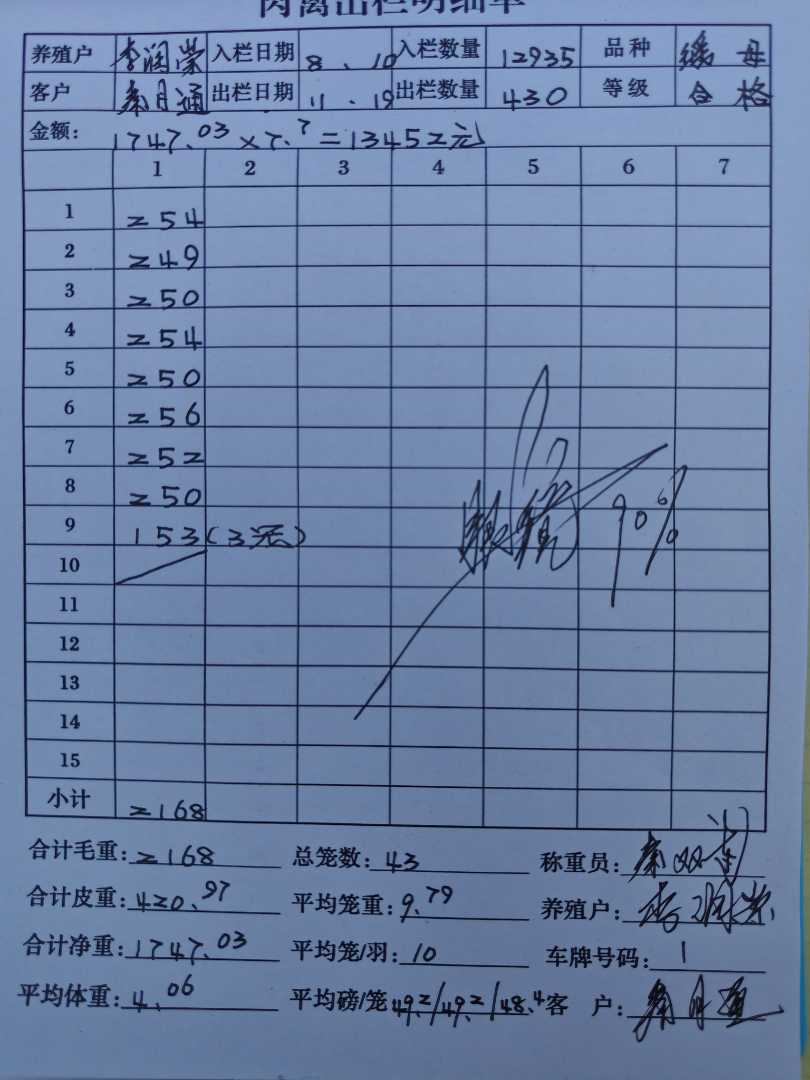 肉禽出栏明细单
养殖户 李润荣 入栏日期 8.10 入栏数量 12935 品种 缘母
客户 秦月通 出栏日期 11.19 出栏数量 430 等级 合格
金额: 1747.03×7.7=13452元
1 2 3 4 5 6 7
1 254
2 249
3 250
4 254
5 250
6 256
7 252
8 250
9 153(3冠)
10
11
12
13
14
15
小计 2168
90%
合计毛重: 2168 总笼数: 43 称重员: 秦双
合计皮重: 420.97 平均笼重: 9.79 养殖户: 李润荣
合计净重: 1747.03 平均笼/羽: 10 车牌号码: 1
平均体重: 4.06 平均磅/笼 49.2/49.2/48.4 客 户: 秦月通